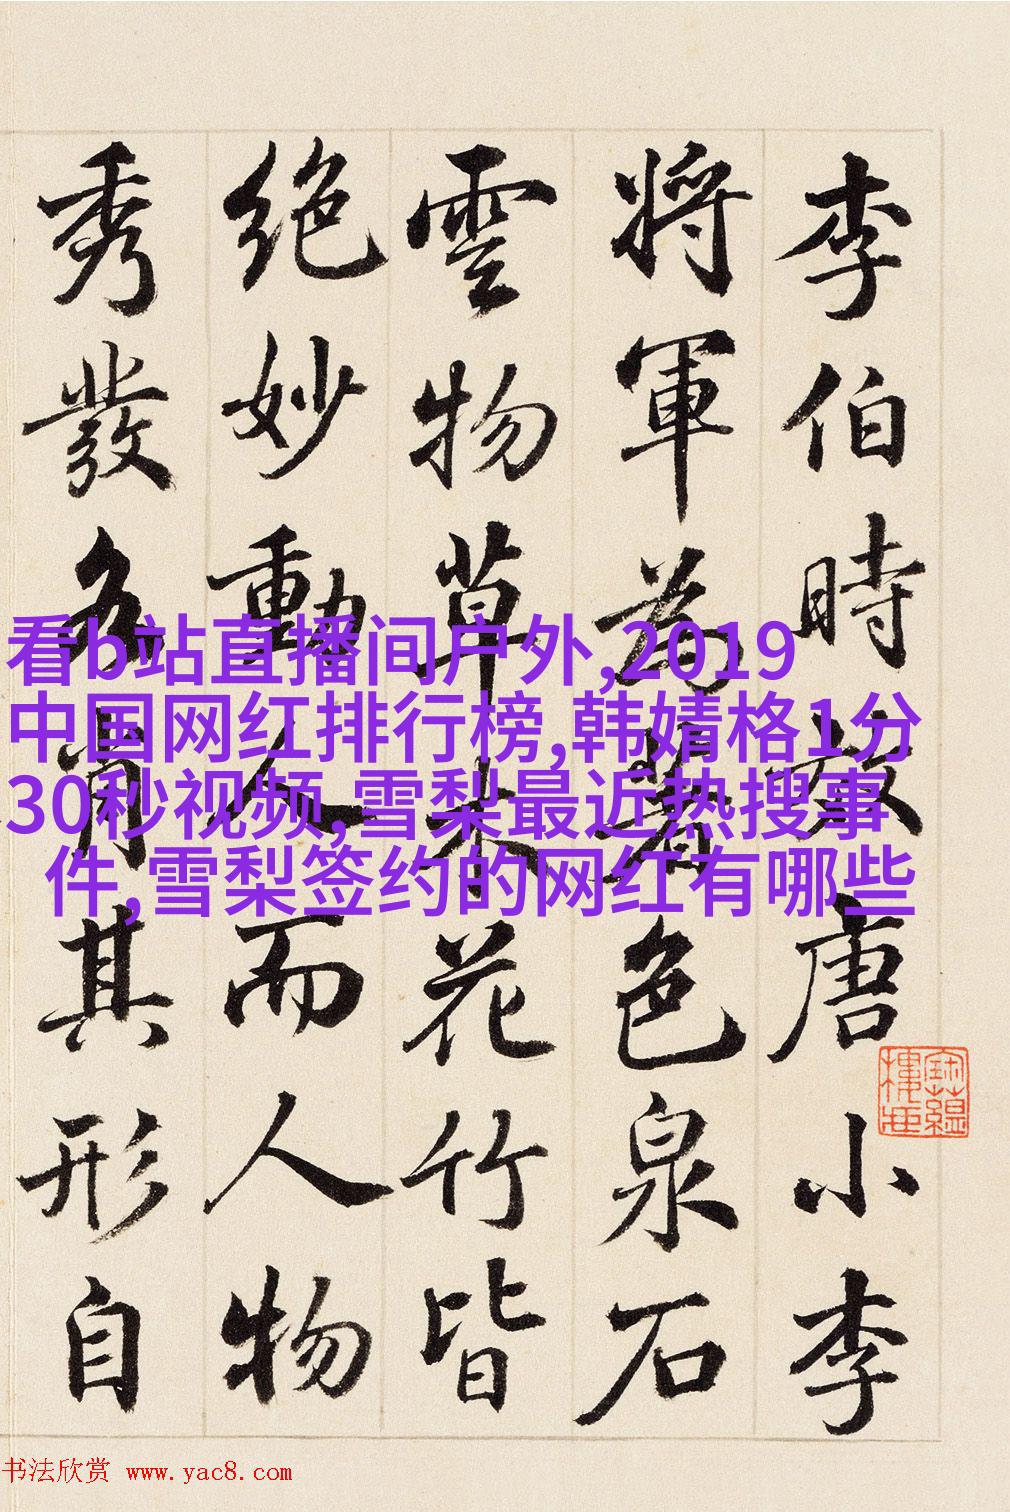 李伯時唐小李
將軍為著色泉石
雲物草木花竹皆
絕妙動人而人物
秀發各肖其形自
看b站直播间户外,2019
中国网红排行榜,韩婧格1分
30秒视频,雪梨最近热搜事
件,雪梨签约的网红有哪些
书法欣赏 www.yac8.com